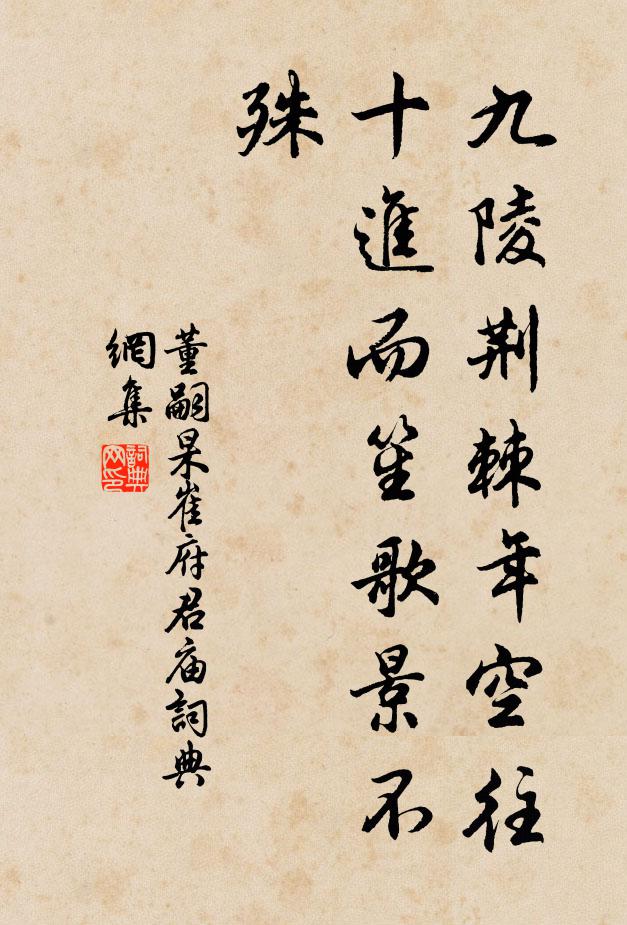 九陵荆棘年空往
十進而笙歌景不
殊
董嗣杲崔府君庙詞典
網集
詞典
网印